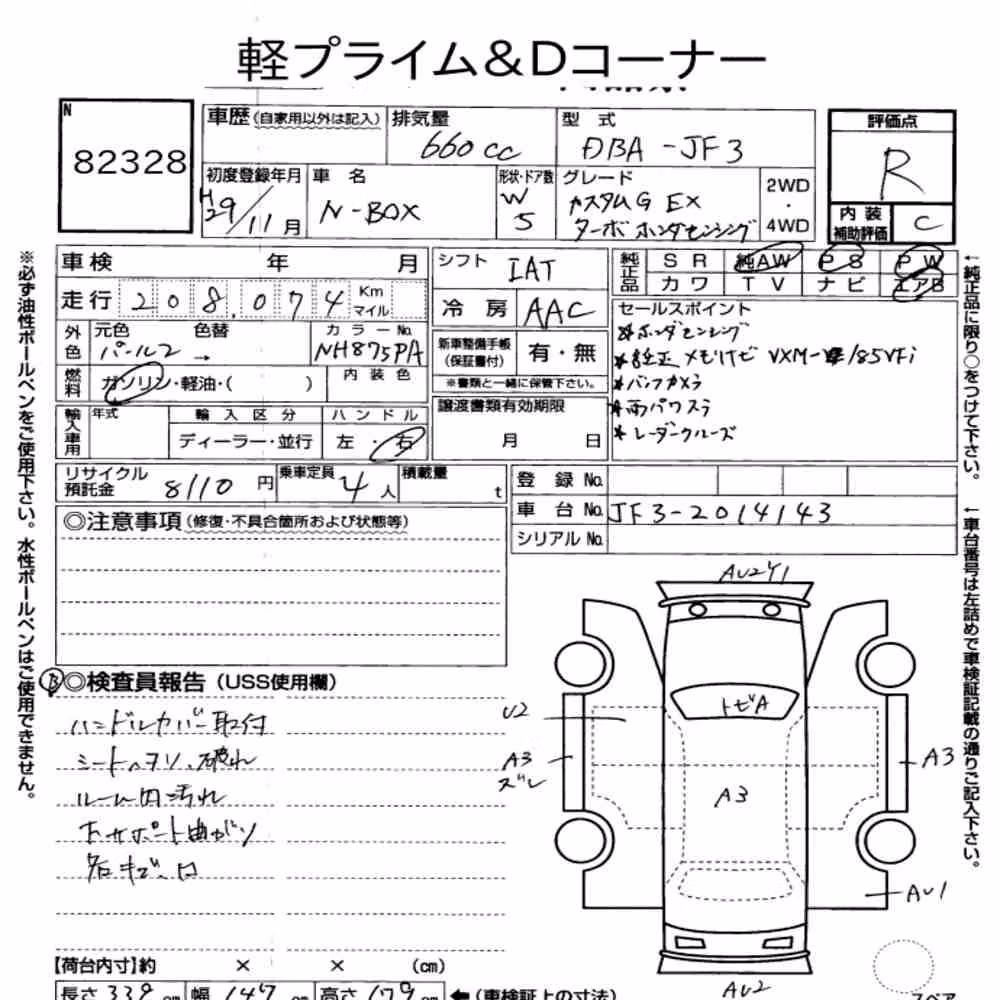 軽プライム&Dコーナー
N
82328
車歴(自家用以外は記入)
排気量
660cc
型 式
DBA-JF3
評価点
R
内装
補助評価
C
初度登録年月
H29/11月
車 名
N-BOX
形状・ドア数
W
5
グレード
カスタムG EX
ターボ ホンダセンシング
2WD
・
4WD
車検 年 月
走行 208,074 Km
マイル
外色
元色
パール2
色替
→
カラーNo.
NH875PA
燃料
ガソリン・軽油・( )
内装色
輸入車用
年式
輸入区分
ディーラー・並行
ハンドル
左・右
シフト
IAT
冷 房
AAC
新車整備手帳
(保証書付)
有・無
※書類と一緒に保管下さい。
譲渡書類有効期限
月 日
純正品
SR 純AW PS PW
カワ TV ナビ エアB
セールスポイント
*ホンダセンシング
*純正メモリナビ VXM-185VFi
*バックカメラ
*両パワスラ
*レーダークルーズ
リサイクル
預託金
8110円
乗車定員
4人
積載量
t
登 録 No.
車 台 No.
JF3-2014143
シリアル No.
◎注意事項(修復・不具合箇所および状態等)
B
◎検査員報告(USS使用欄)
ハンドルカバー取付
シートヘタリ、破れ
ルーム内汚れ
右サポート曲がり
各キズ、凹
AU2Y1
トビA
U2
A3
ズレ
A3
A3
AU1
AU2
【荷台内寸】約 × × (cm)
長さ 339 cm 幅 147 cm 高さ 179 cm
←(車検証上の寸法)
スペア
※必ず油性ボールペンをご使用下さい。水性ボールペンはご使用できません。
←純正品に限り○をつけて下さい。
←車台番号は左詰めで車検証記載の通りご記入下さい。